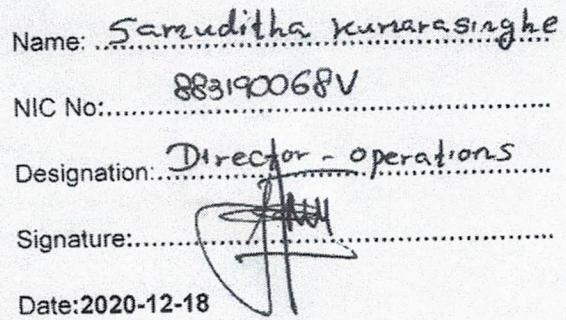 Name: Samuditha Kumarasinghe
NIC No: 883190068V
Designation: Director - operations
Signature:
Date:2020-12-18